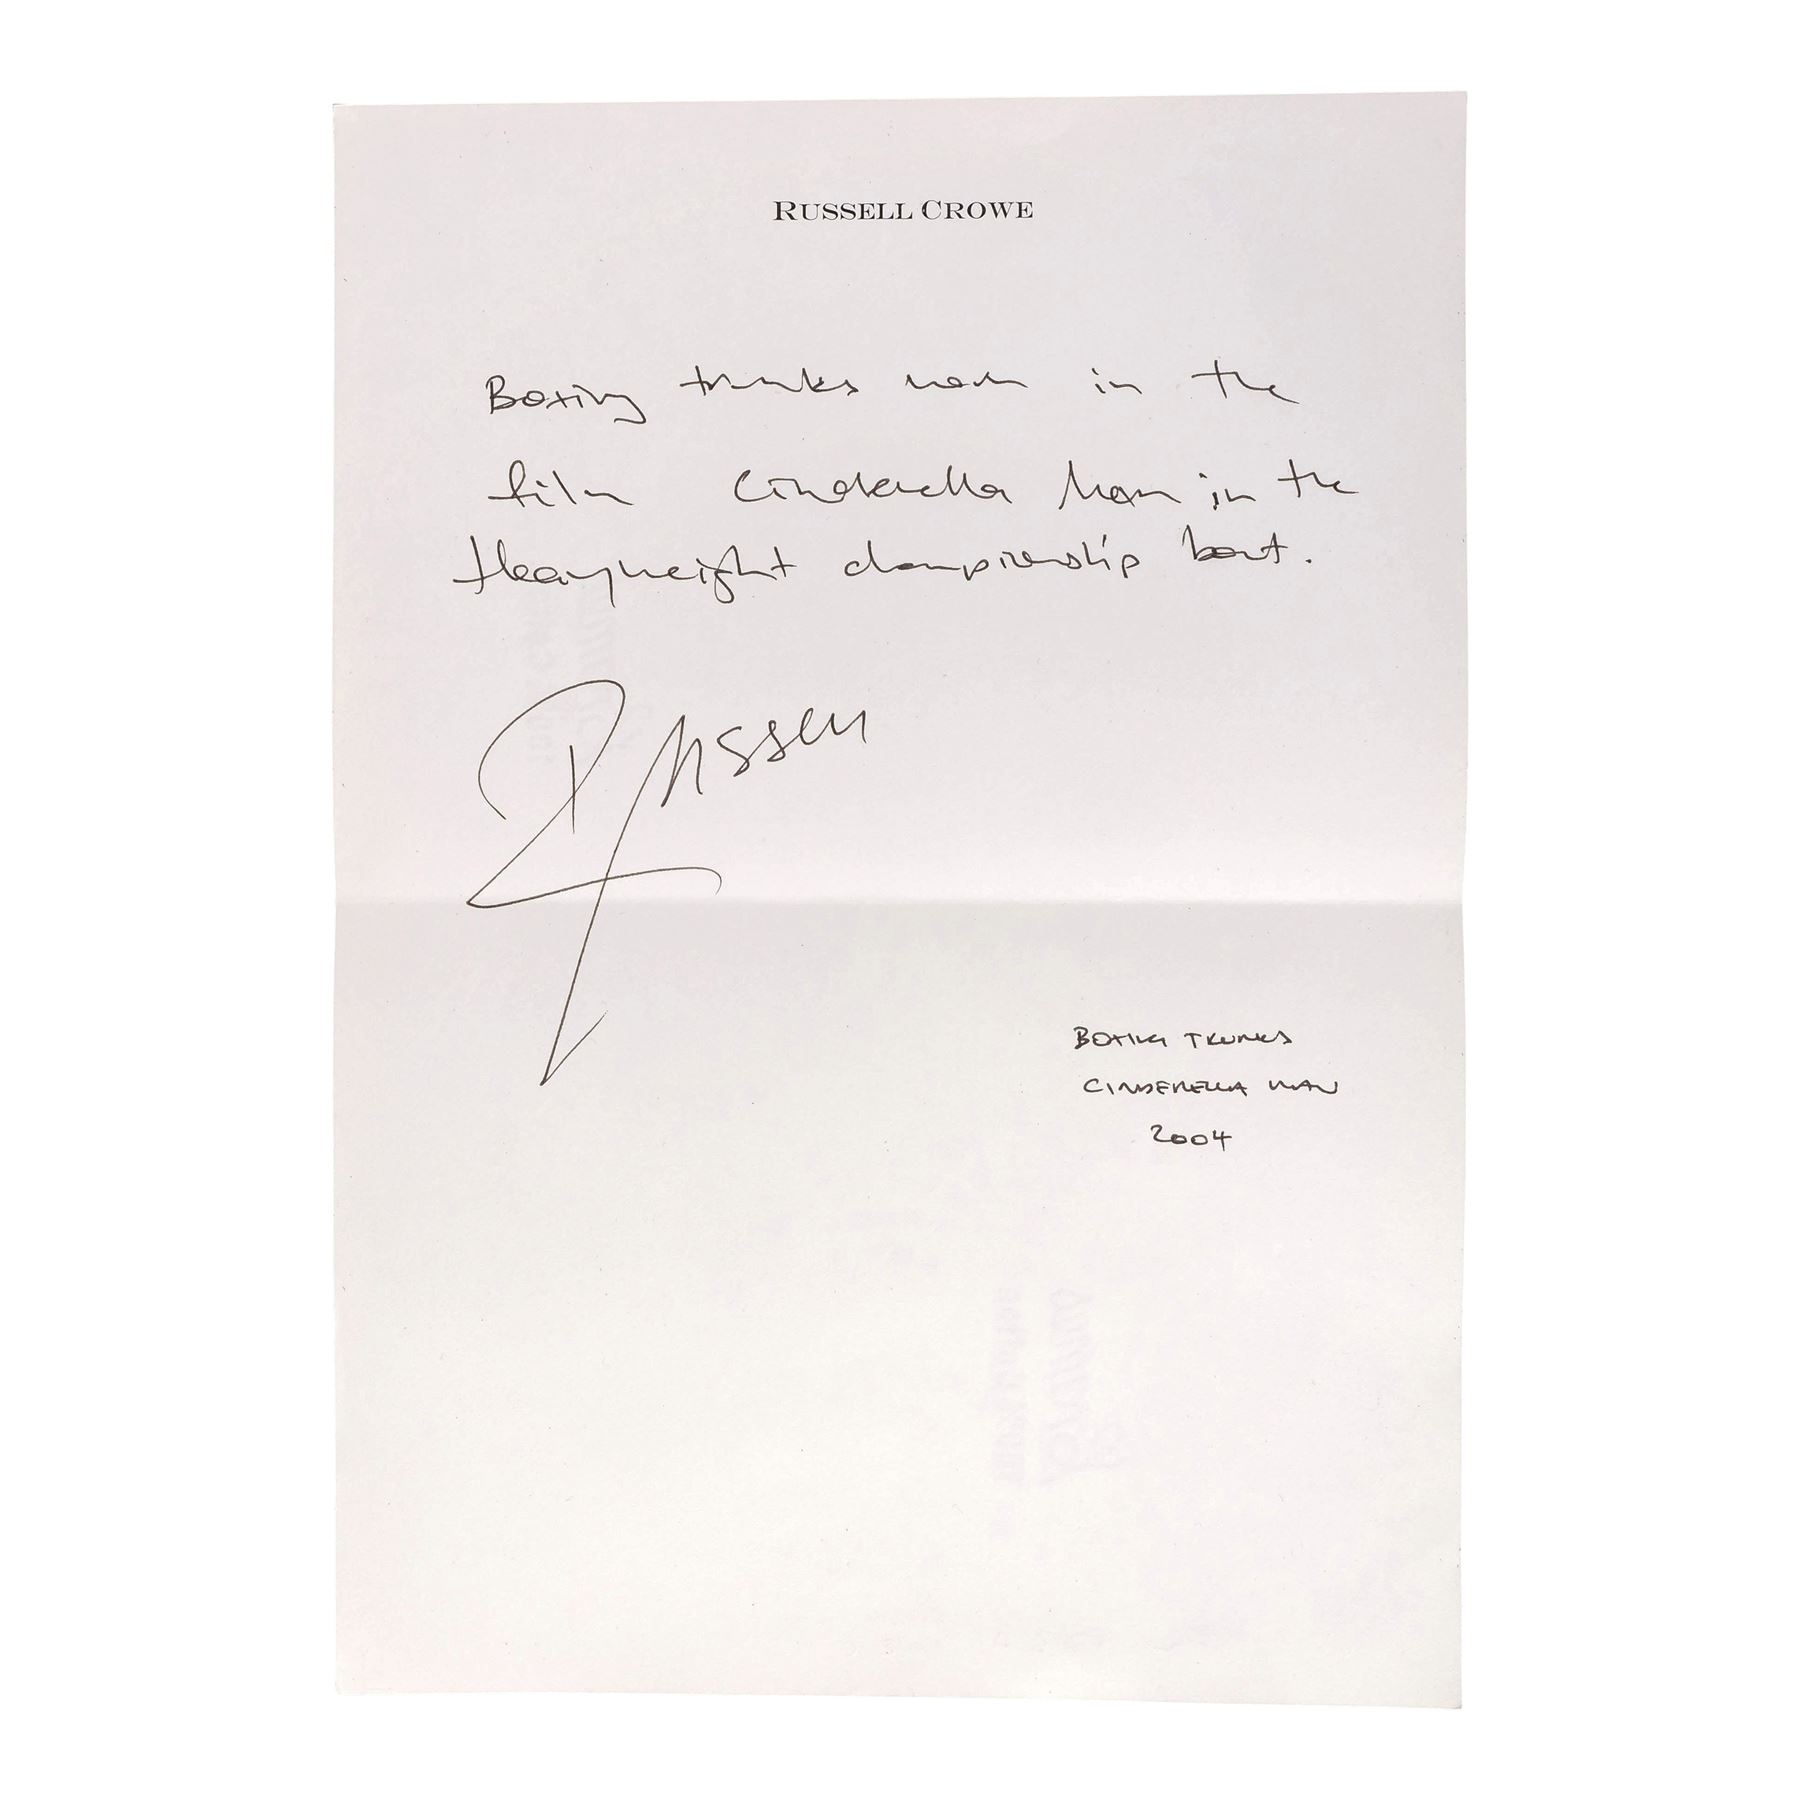 RUSSELL CROWE
Boxing trunks worn in the
film Cinderella Man in the
Heavyweight championship bout.
Russell
BOXING TRUNKS
CINDERELLA MAN
2004